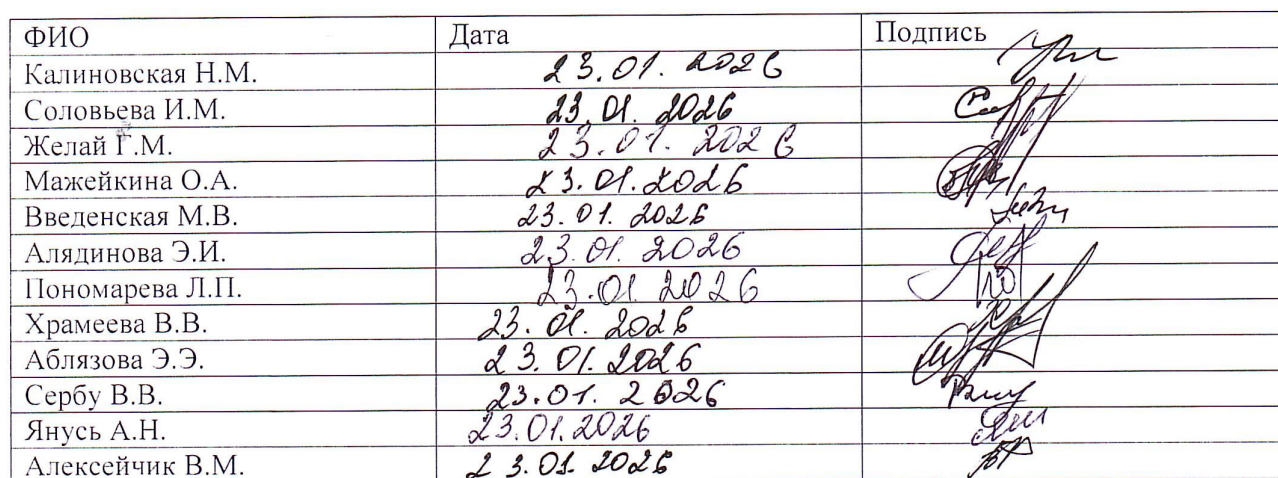 ФИО Дата Подпись
Калиновская Н.М. 23.01.2026
Соловьева И.М. 23.01.2026
Желай Г.М. 23.01.2026
Мажейкина О.А. 23.01.2026
Введенская М.В. 23.01.2026
Алядинова Э.И. 23.01.2026
Пономарева Л.П. 23.01.2026
Храмеева В.В. 23.01.2026
Аблязова Э.Э. 23.01.2026
Сербу В.В. 23.01.2026
Янусь А.Н. 23.01.2026
Алексейчик В.М. 23.01.2026